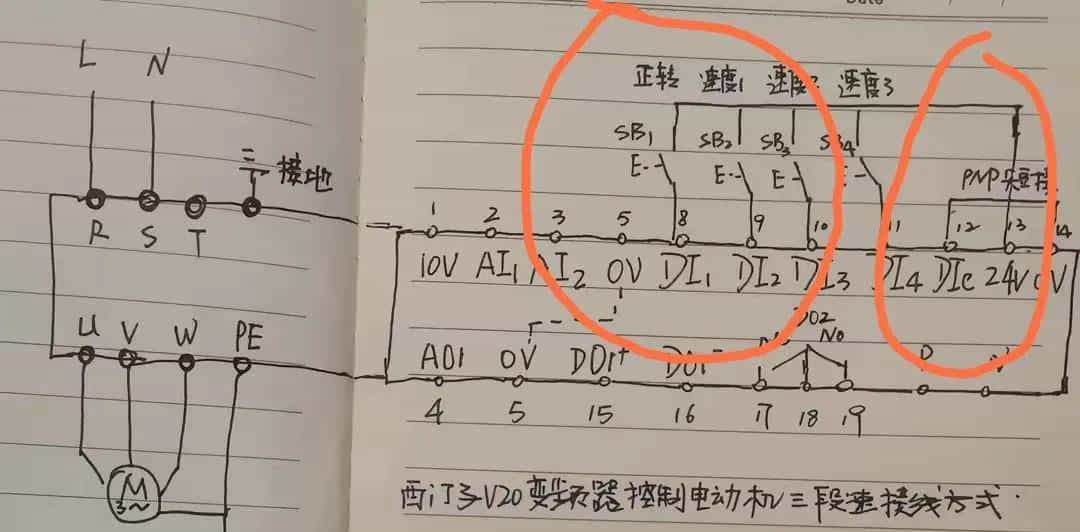 L N
接地
R S T
U V W PE
M
3~
正转 速度1 速度2 速度3
SB1 SB2 SB3 SB4
E E E E
PNP
1 2 3 5 8 9 10 11 12 13 14
10V AI1 AI2 0V DI1 DI2 DI3 DI4 DIC 24V 0V
DO2
NO
AO1 0V DO1+ DO1-
4 5 15 16 17 18 19
西门子V20变频器控制电动机三段速接线方式.